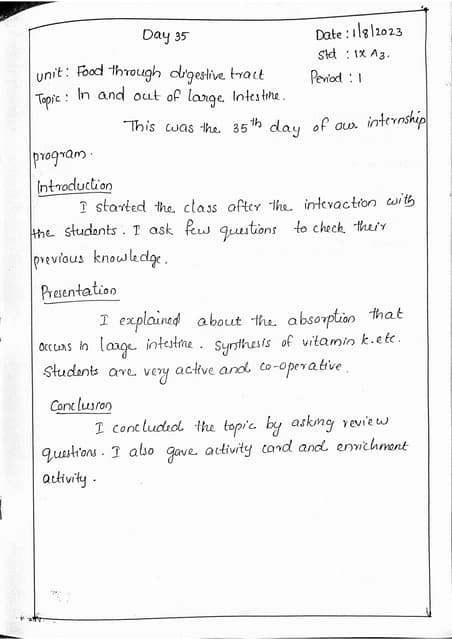 Day 35
Date : 1/8/2023
Std : IX A3.
Unit : Food through digestive tract
Period : 1
Topic : In and out of large Intestine.
This was the 35th day of our internship
program.
Introduction
I started the class after the interaction with
the students. I ask few questions to check their
previous knowledge.
Presentation
I explained about the absorption that
occurs in large intestine. Synthesis of vitamin k.etc.
Students are very active and co-operative.
Conclusion
I concluded the topic by asking review
questions. I also gave activity card and enrichment
activity.